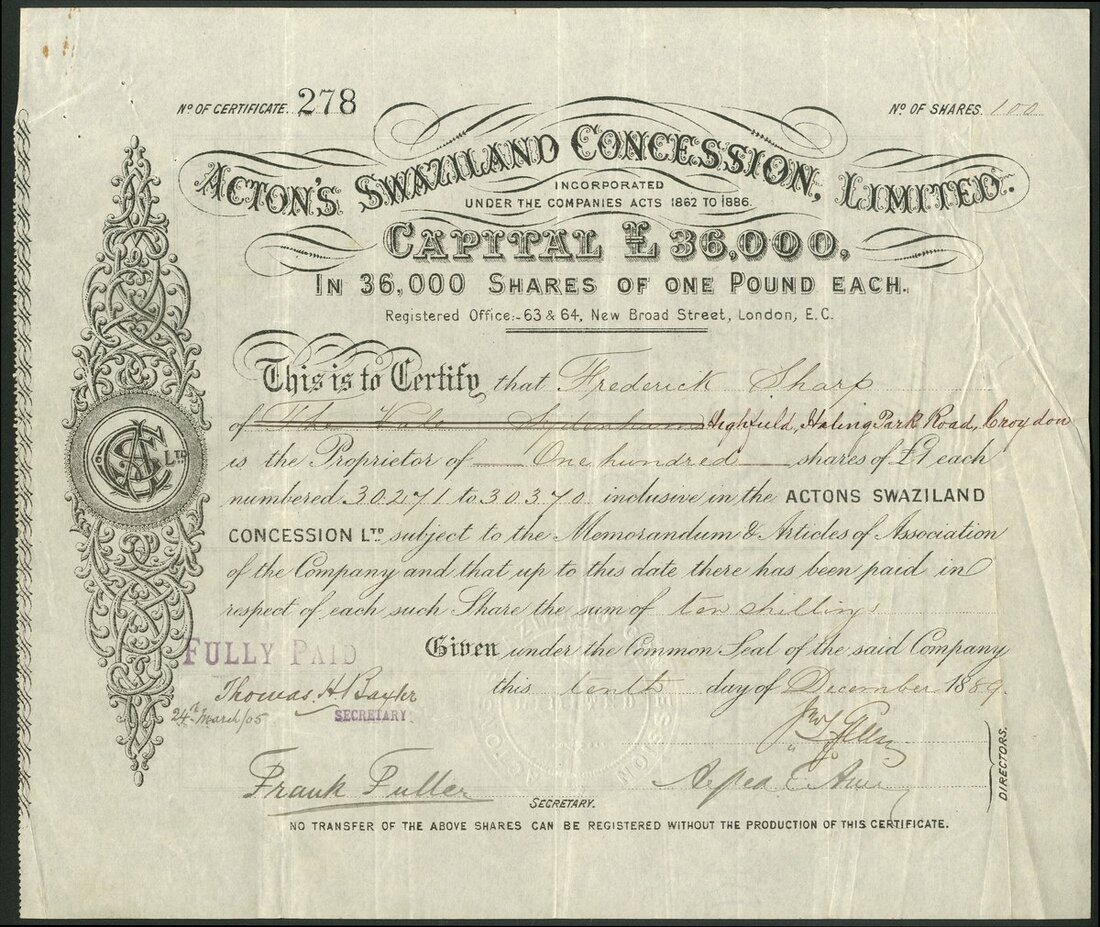 No OF CERTIFICATE. 278
No OF SHARES. 100
ACTON'S SWAZILAND CONCESSION, LIMITED.
INCORPORATED
UNDER THE COMPANIES ACTS 1862 TO 1886.
CAPITAL £ 36,000,
IN 36,000 SHARES OF ONE POUND EACH.
Registered Office:- 63 & 64, New Broad Street, London, E.C.
This is to Certify that Frederick Sharp
of The Sydenham Highfield, Haling Park Road, Croydon
is the Proprietor of One hundred shares of £1 each
numbered 30271 to 30370 inclusive in the ACTONS SWAZILAND
CONCESSION LTD subject to the Memorandum & Articles of Association
of the Company and that up to this date there has been paid in
respect of each such Share the sum of ten shillings
LTD
FULLY PAID
Given under the Common Seal of the said Company
this tenth day of December 1889.
Thomas H Baxter
24th March/05
SECRETARY.
DIRECTORS.
Frank Fuller
SECRETARY.
NO TRANSFER OF THE ABOVE SHARES CAN BE REGISTERED WITHOUT THE PRODUCTION OF THIS CERTIFICATE.